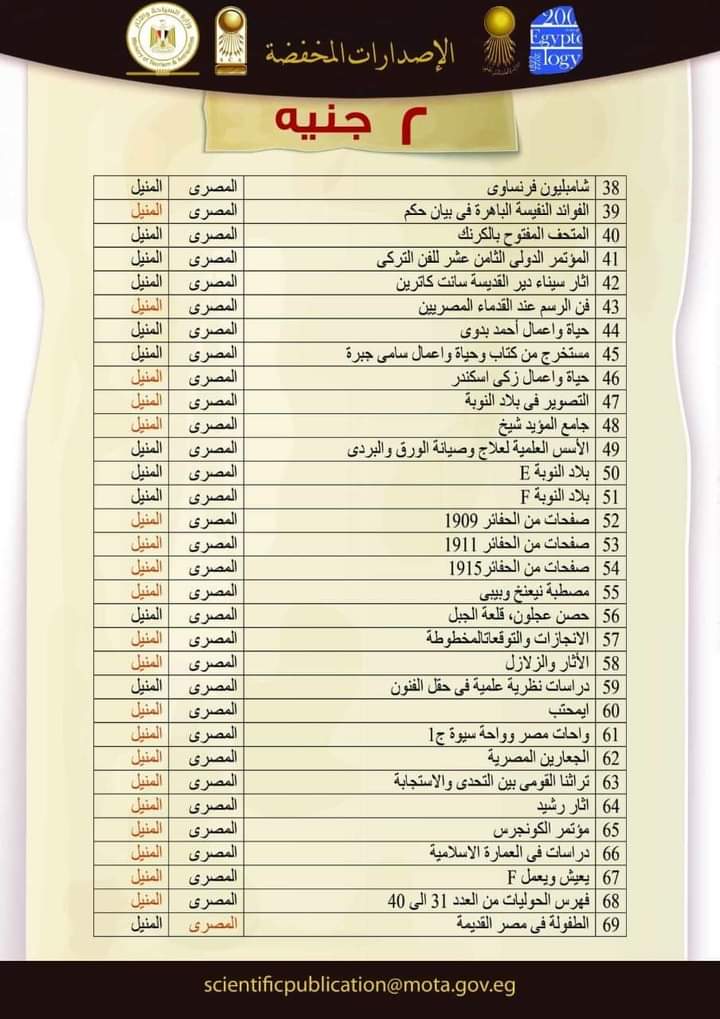 وزارة السياحة والآثار
Ministry of Tourism & Antiquities
الإصدارات المخفضة
200
Egypto
logy
٢ جنيه
38 شامبليون فرنساوى المصرى المنيل
39 الفوائد النفيسة الباهرة فى بيان حكم المصرى المنيل
40 المتحف المفتوح بالكرنك المصرى المنيل
41 المؤتمر الدولى الثامن عشر للفن التركى المصرى المنيل
42 اثار سيناء دير القديسة سانت كاترين المصرى المنيل
43 فن الرسم عند القدماء المصريين المصرى المنيل
44 حياة واعمال أحمد بدوى المصرى المنيل
45 مستخرج من كتاب وحياة واعمال سامى جبرة المصرى المنيل
46 حياة واعمال زكى اسكندر المصرى المنيل
47 التصوير فى بلاد النوبة المصرى المنيل
48 جامع المؤيد شيخ المصرى المنيل
49 الأسس العلمية لعلاج وصيانة الورق والبردى المصرى المنيل
50 بلاد النوبة E المصرى المنيل
51 بلاد النوبة F المصرى المنيل
52 صفحات من الحفائر 1909 المصرى المنيل
53 صفحات من الحفائر 1911 المصرى المنيل
54 صفحات من الحفائر1915 المصرى المنيل
55 مصطبة نيعنخ وبيبى المصرى المنيل
56 حصن عجلون، قلعة الجبل المصرى المنيل
57 الانجازات والتوقعاتالمخطوطة المصرى المنيل
58 الأثار والزلازل المصرى المنيل
59 دراسات نظرية علمية فى حقل الفنون المصرى المنيل
60 ايمحتب المصرى المنيل
61 واحات مصر وواحة سيوة ج1 المصرى المنيل
62 الجعارين المصرية المصرى المنيل
63 تراثنا القومى بين التحدى والاستجابة المصرى المنيل
64 اثار رشيد المصرى المنيل
65 مؤتمر الكونجرس المصرى المنيل
66 دراسات فى العمارة الاسلامية المصرى المنيل
67 يعيش ويعمل F المصرى المنيل
68 فهرس الحوليات من العدد 31 الى 40 المصرى المنيل
69 الطفولة فى مصر القديمة المصرى المنيل
scientificpublication@mota.gov.eg